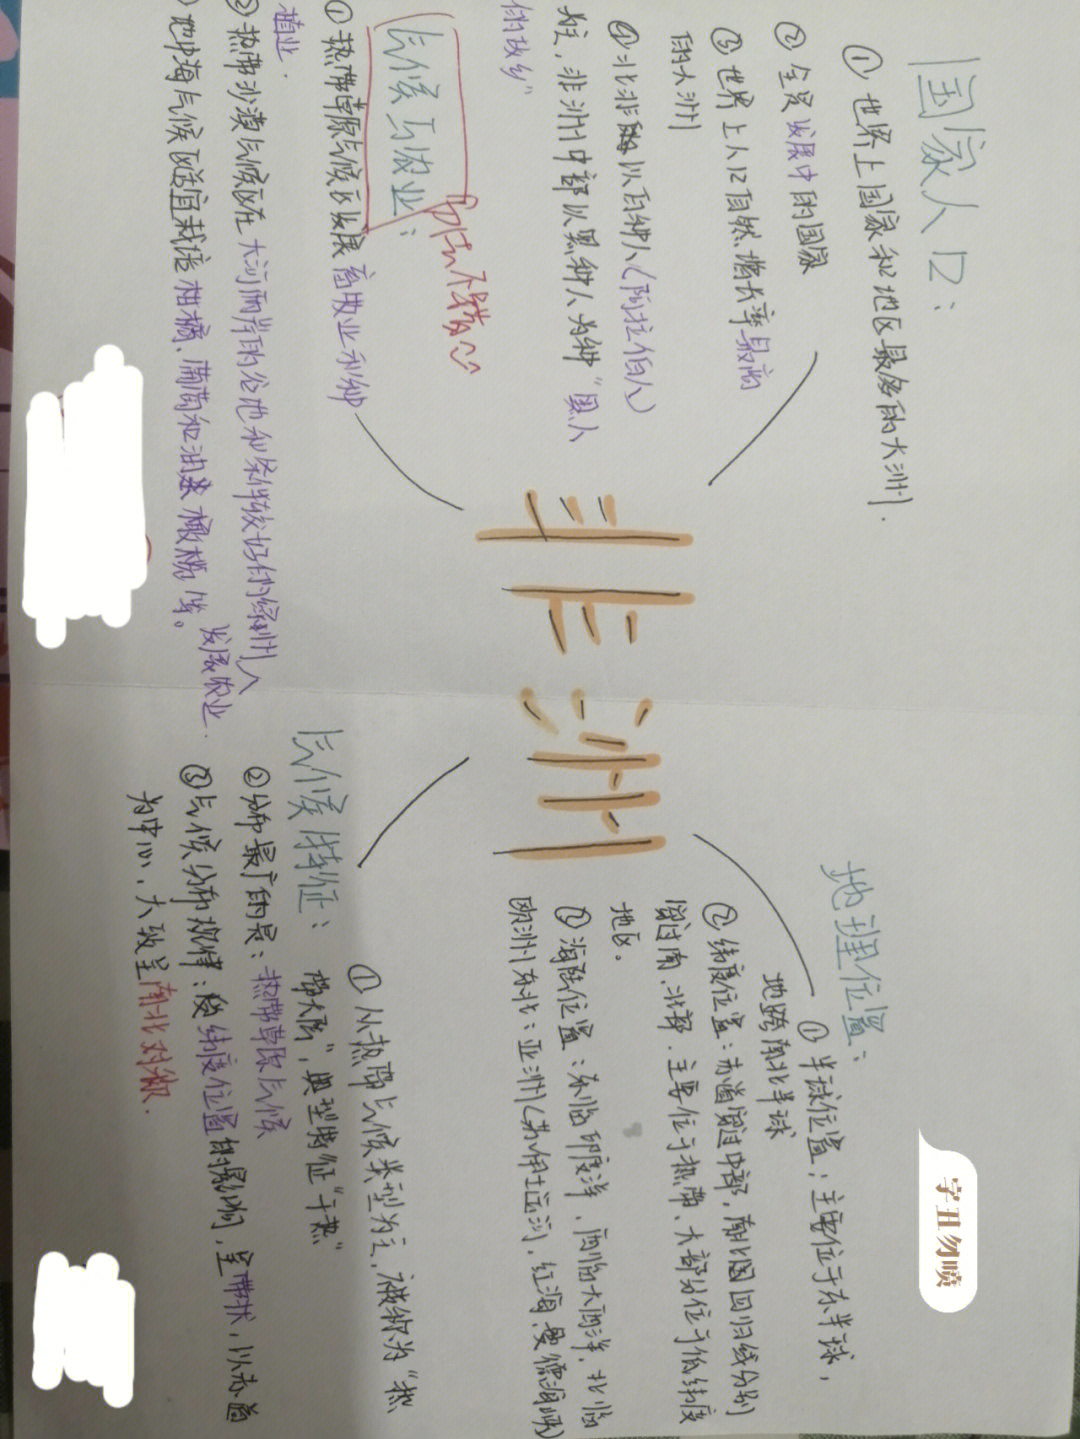 国家人口：
① 世界上国家和地区最多的大洲．
② 全是发展中的国家
③ 世界上人口自然增长率最高
的大洲
④ 北非以白种人（阿拉伯人）
为主，非洲中部以黑种人为种“黑人
的故乡”
气候与农业：
① 热带草原气候区发展畜牧业和种
植业．
② 热带沙漠气候区在大河两岸的谷地和条件较好的绿洲
发展农业．
地中海气候区适宜栽培柑橘、葡萄和油橄榄等。
非洲
地理位置：
① 半球位置：主要位于东半球，
地跨南北半球
② 纬度位置：赤道穿过中部，南北回归线分别
穿过南、北部．主要位于热带、大部分位于低纬度
地区。
③ 海陆位置：东临印度洋、西临大西洋、北临
欧洲东北：亚洲（苏伊士运河，红海，曼德海峡）
气候特征：
① 从热带气候类型为主，被称为“热
带大陆”，典型特征“干热”
② 分布最广的是：热带草原气候
③ 气候分布规律：受纬度位置的影响，呈带状，以赤道
为中心、大致呈南北对称．
字丑勿喷